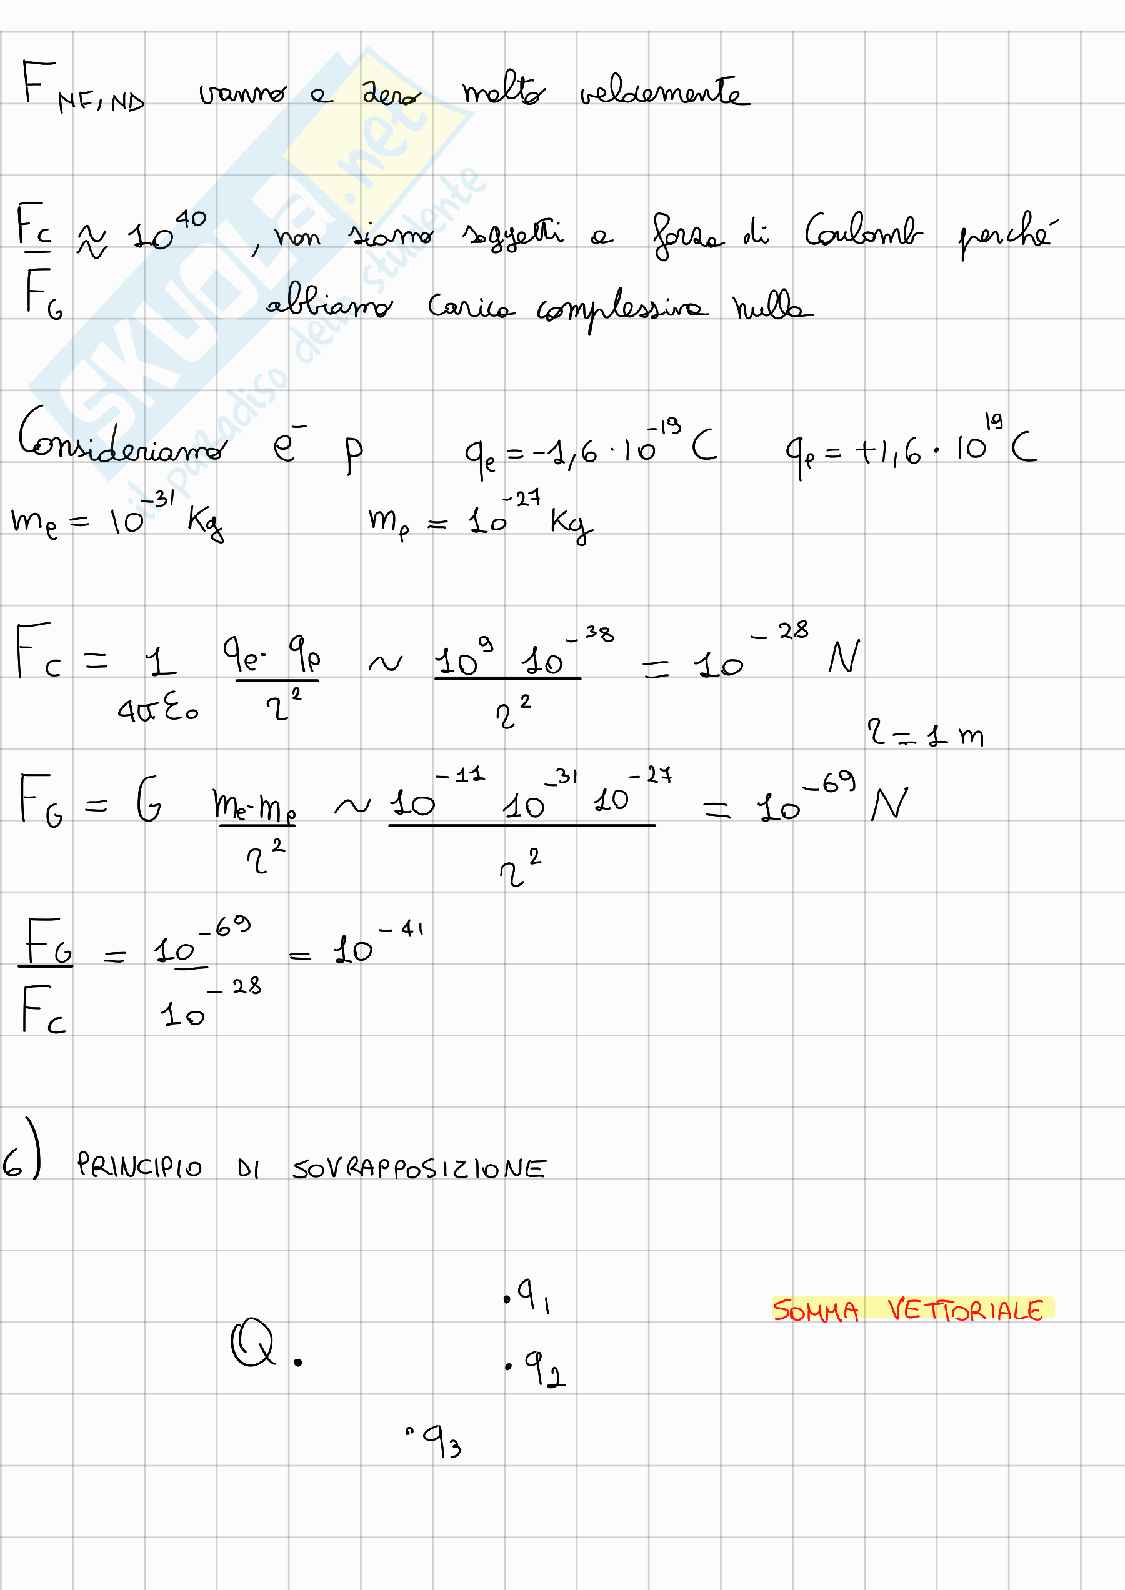 F_NF,ND vanno a zero molto velocemente
F_C/F_G ≈ 10^40 , non siamo soggetti a forza di Coulomb perché
abbiamo carica complessiva nulla
Consideriamo e^- p q_e = -1,6 · 10^-19 C q_p = +1,6 · 10^19 C
m_e = 10^-31 Kg m_p = 10^-27 Kg
F_C = 1/4πε_0 q_e · q_p/r^2 ~ 10^9 10^-38/r^2 = 10^-28 N
r = 1 m
F_G = G m_e · m_p/r^2 ~ 10^-11 10^-31 10^-27/r^2 = 10^-69 N
F_G/F_C = 10^-69/10^-28 = 10^-41
6) PRINCIPIO DI SOVRAPPOSIZIONE
. q_1
SOMMA VETTORIALE
Q .
. q_2
. q_3
SKUOLA.net
il paradiso dello studente